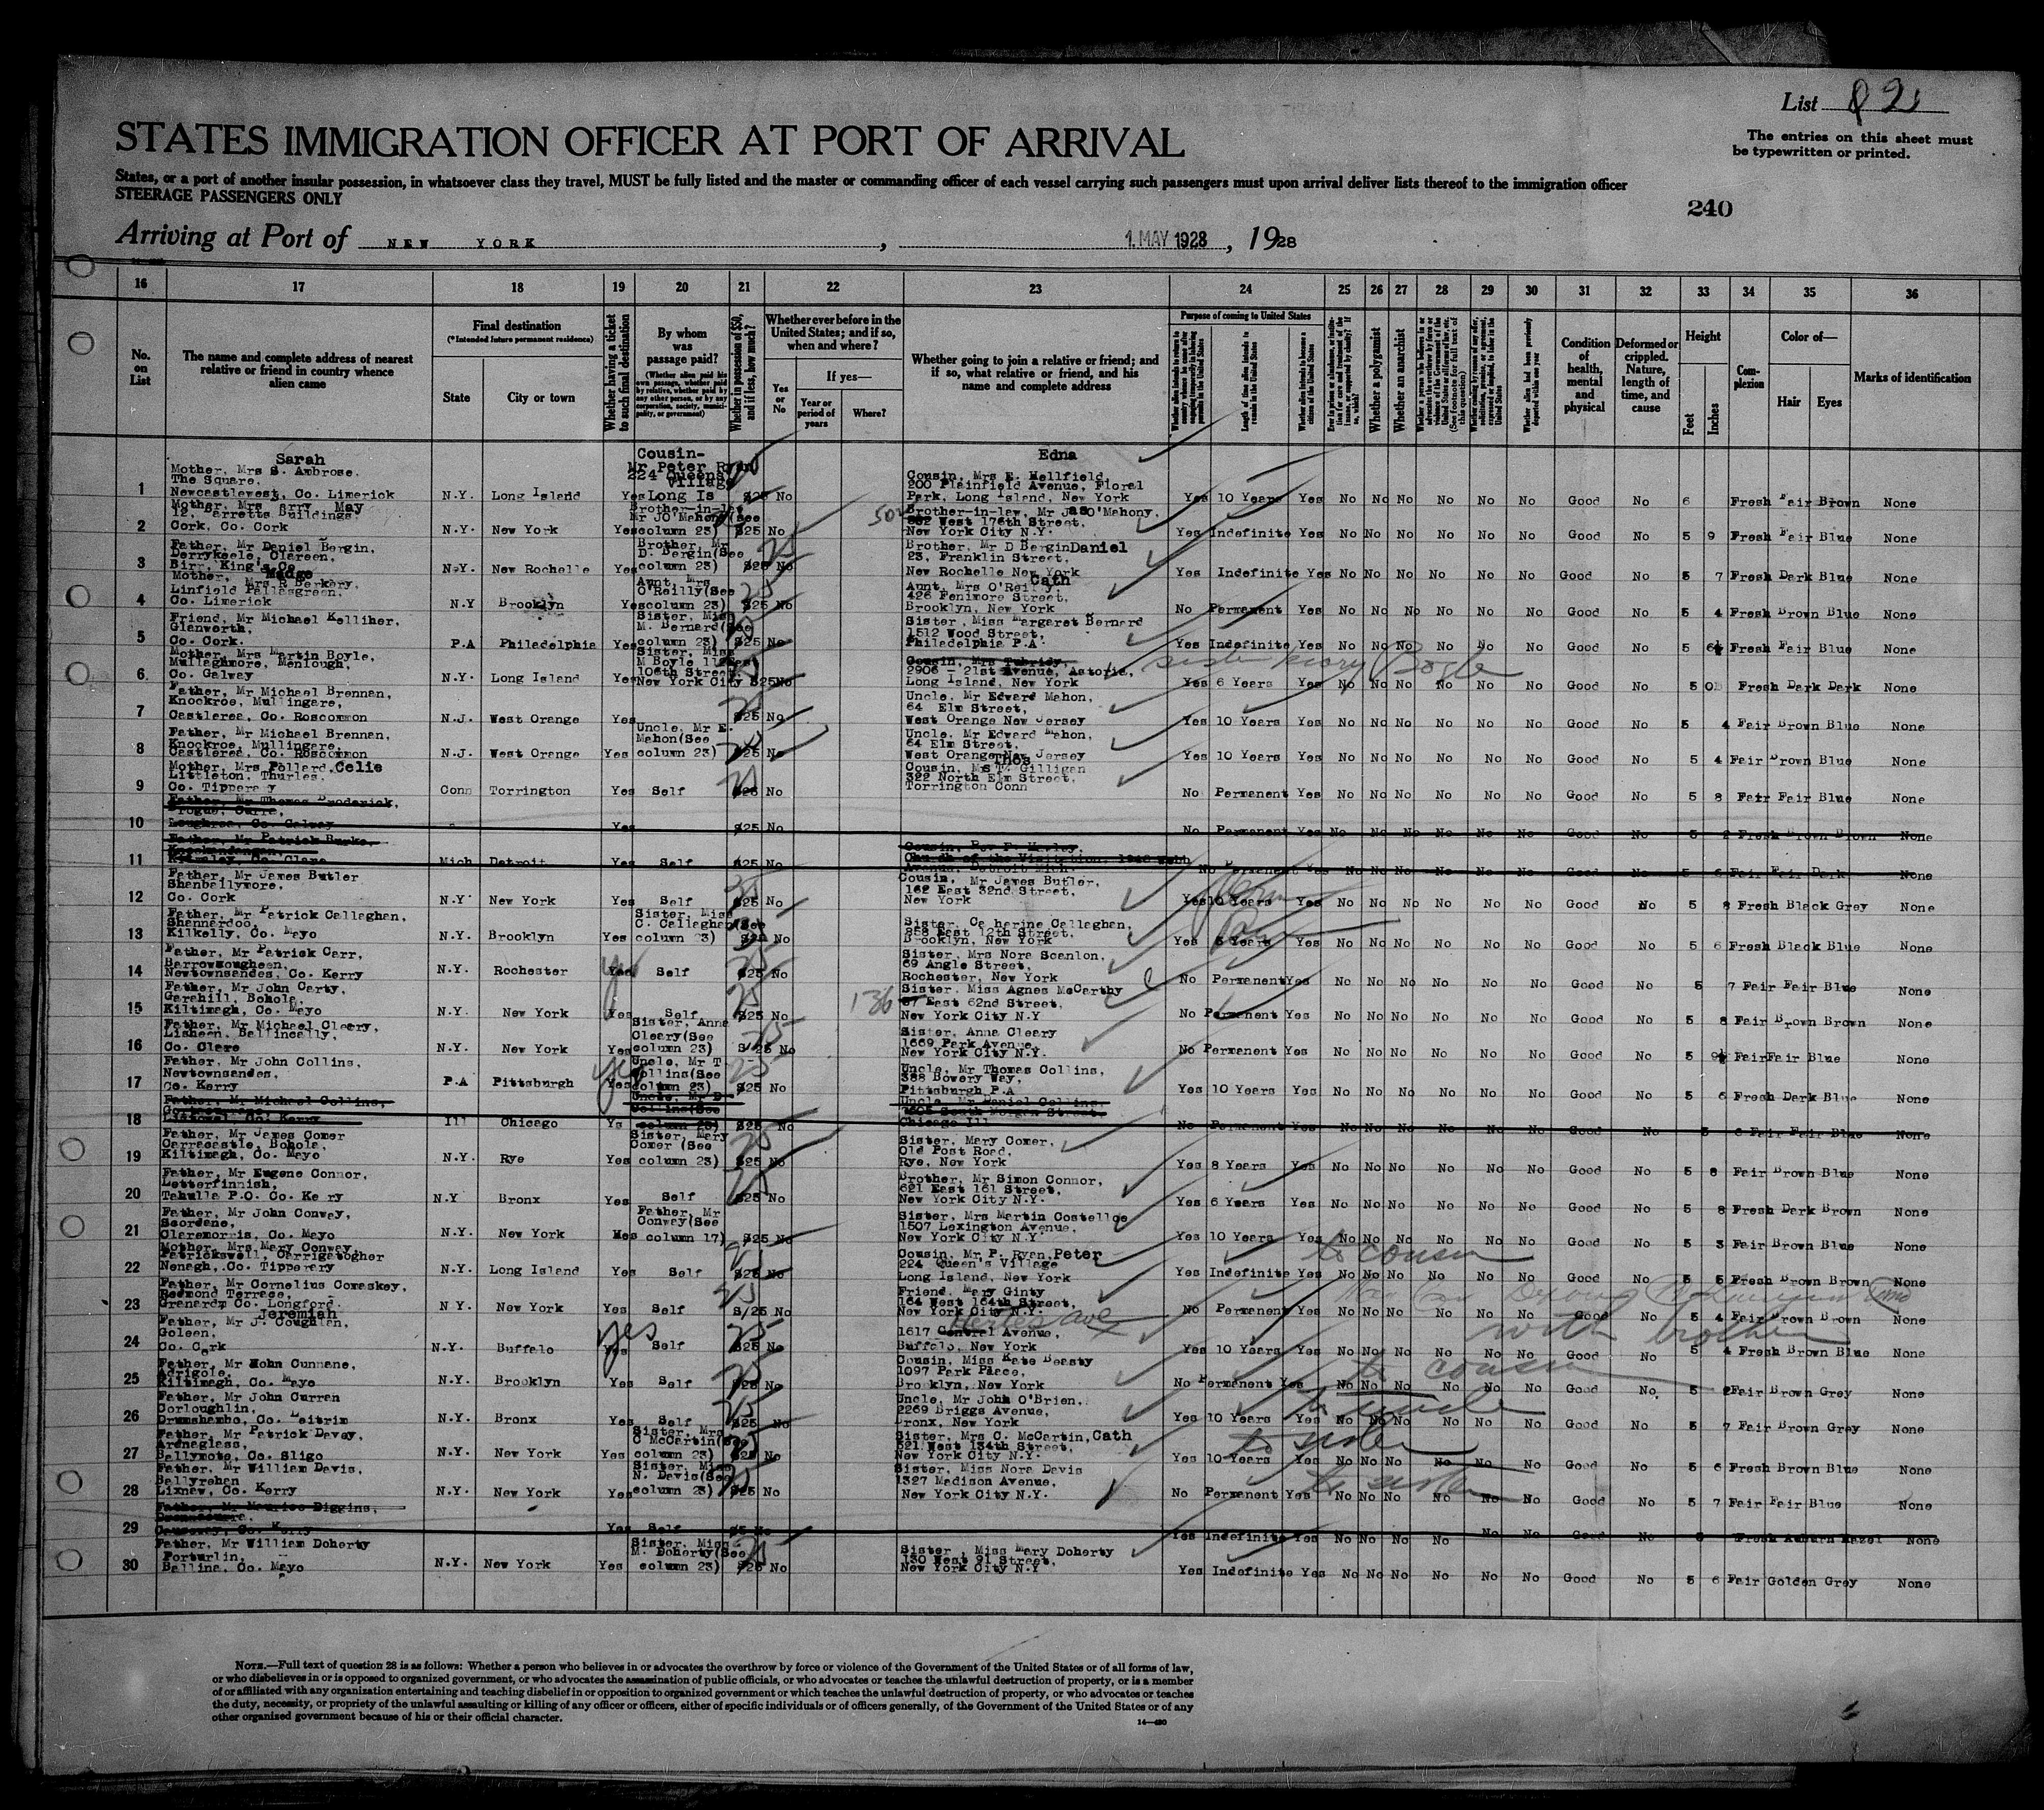 List
The entries on this sheet must
be typewritten or printed.
STATES IMMIGRATION OFFICER AT PORT OF ARRIVAL
States, or a port of another insular possession, in whatsoever class they travel, MUST be fully listed and the master or commanding officer of each vessel carrying such passengers must upon arrival deliver lists thereof to the immigration officer
STEERAGE PASSENGERS ONLY
240
Arriving at Port of NEW YORK, 1 MAY 1928, 1928
16 17 18 19 20 21 22 23 24 25 26 27 28 29 30 31 32 33 34 35 36
No. on List
The name and complete address of nearest relative or friend in country whence alien came
Final destination
(*Intended future permanent residence)
State
City or town
Whether having a ticket to such final destination
By whom was passage paid?
(Whether alien paid his own passage, whether paid by relative, whether paid by any other person, or by any corporation, society, municipality, or government)
Whether in possession of $50, and if less, how much?
Whether ever before in the United States; and if so, when and where?
Yes or No
If yes—
Year or period of years
Where?
Whether going to join a relative or friend; and if so, what relative or friend, and his name and complete address
Purpose of coming to United States
Whether a polygamist
Whether an anarchist
Condition of health, mental and physical
Deformed or crippled. Nature, length of time, and cause
Height
Feet
Inches
Complexion
Color of—
Hair
Eyes
Marks of identification
Sarah
Mother, Mrs S. Ambrose.
The Square,
1 Newcastlewest, Co. Limerick N.Y. Long Island Yes
Cousin-
Mr Peter Ryan
224 Queens
Village
Long Is $25 No
Edna
Cousin, Mrs E. Hellfield,
200 Plainfield Avenue, Floral
Park, Long Island, New York Yes 10 Years Yes No No No No No No Good No 6 Fresh Fair Brown None
2 Cork, Co. Cork N.Y. New York Yes column 23) $25 No
Brother-in-law, Mr Jas O'Mahony,
502 West 176th Street,
New York City N.Y. Yes Indefinite Yes No No No No No No Good No 5 9 Fresh Fair Blue None
Father, Mr Daniel Bergin,
Derrykeele, Clareen,
3 Birr, King's Co. N.Y. New Rochelle Yes
Brother, Mr
D. Bergin(See
column 23) $25 No
Brother, Mr D Bergin Daniel
23, Franklin Street,
New Rochelle New York Yes Indefinite Yes No No No No No No Good No 5 7 Fresh Dark Blue None
Mother, Madge
Mrs R Berkery,
Linfield Pallasgreen,
4 Co. Limerick N.Y Brooklyn Yes
Aunt, Mrs
O'Reilly(See
column 23) $25 No
Cath
Aunt, Mrs O'Reilly,
426 Fenimore Street,
Brooklyn, New York No Permanent Yes No No No No No No Good No 5 4 Fresh Brown Blue None
Friend, Mr Michael Kelliher,
Glanworth,
5 Co. Cork. P.A Philadelphia Yes
Sister, Miss
M. Bernard(See
column 23) $25 No
Sister, Miss Margaret Bernard
1512 Wood Street,
Philadelphia P.A. Yes Indefinite Yes No No No No No No Good No 5 6½ Fresh Fair Blue None
Mother, Mrs Martin Boyle,
Mullaghmore, Menlough,
6 Co. Galway N.Y. Long Island Yes
Sister, Miss
106th Street,
New York City $25 No
Cousin, Mrs Tubridy,
2906 - 21st Avenue, Astoria,
Long Island, New York Yes 6 Years Yes No No No No No No Good No 5 Fresh Dark Dark None
sister Mary Boyle
Father, Mr Michael Brennan,
Knockroe, Mullingare,
7 Castlerea, Co. Roscommon N.J. West Orange Yes $25 No
Uncle, Mr Edward Mahon,
64 Elm Street,
West Orange New Jersey Yes 10 Years Yes No No No No No No Good No 5 4 Fair Brown Blue None
Father, Mr Michael Brennan,
Knockroe, Mullingare,
8 Castlerea, Co. Roscommon N.J. West Orange Yes
Uncle, Mr E.
Mahon(See
column 23) $25 No
Uncle, Mr Edward Mahon,
64 Elm Street,
West Orange New Jersey Yes 10 Years Yes No No No No No No Good No 5 4 Fair Brown Blue None
Mother, Mrs Pollard, Celie
Littleton, Thurles,
9 Co. Tipperary Conn Torrington Yes Self $25 No
Thos
Gilligan
322 North Elm Street,
Torrington Conn No Permanent Yes No No No No No No Good No 5 8 Fair Fair Blue None
Father, Mr Thomas Broderick,
10 Loughrea, Co. Galway Yes $25 No No Permanent Yes No No No No No No Good No 5 2 Fresh Brown Brown None
Father, Mr Patrick Burke,
11 Co. Clare Mich Detroit Yes Self $25 No
Church of the Visitation,
Avenue, Detroit Mich. No Permanent Yes No No No No No No Good No 5 6 Fair Fair Dark None
Father, Mr James Butler
Shanballymore,
12 Co. Cork N.Y. New York Yes Self $25 No
Cousin, Mr James Butler,
162 East 32nd Street,
New York Yes 10 Years Yes No No No No No No Good No 5 8 Fresh Black Grey None
Father, Mr Patrick Callaghan,
Shannerdoo,
13 Kilkelly, Co. Mayo N.Y. Brooklyn Yes
Sister, Miss
C. Callaghan(See
column 23) No
Sister, Catherine Callaghan,
858 East 12th Street,
Brooklyn, New York Yes Years Yes No No No No No No Good No 5 6 Fresh Black Blue None
Father, Mr Patrick Carr,
14 Newtownsandes, Co. Kerry N.Y. Rochester Yes Self $25 No
Sister, Mrs Nora Scanlon,
69 Angle Street,
Rochester, New York No Permanent Yes No No No No No No Good No 5 7 Fair Fair Blue None
Father, Mr John Carty,
Garahill, Bohola,
15 Kiltimagh, Co. Mayo N.Y. New York Yes Self $25 No
136
Sister, Miss Agnes McCarthy
East 62nd Street,
New York City N.Y No Permanent Yes No No No No No No Good No 5 8 Fair Brown Brown None
Father, Mr Michael Cleary,
Lisheen, Ballineally,
16 Co. Clare N.Y. New York Yes
Sister, Anna
Cleary(See
column 23) $/25 No
Sister, Anna Cleary
1669 Park Avenue,
New York City N.Y. No Permanent Yes No No No No No No Good No 5 9½ Fair Fair Blue None
Father, Mr John Collins,
Newtownsandes,
17 Co. Kerry P.A Pittsburgh Yes
Uncle, Mr T
Collins(See
column 23) $25 No
Uncle, Mr Thomas Collins,
388 Bowery Way,
Pittsburgh P.A Yes 10 Years Yes No No No No No No Good No 5 6 Fresh Dark Blue None
Father, Mr Michael Collins,
18 Listowel, Co. Kerry Ill Chicago Ys
Uncle, Mr D
Collins(See
column 23) $25 No
Uncle, Mr Daniel Collins,
South Morgan Street,
Chicago Ill No Permanent Yes No No No No No No Good No 5 6 Fair Fair Blue None
Father, Mr James Comer
Carracastle, Bohola,
19 Kiltimagh, Co. Mayo N.Y. Rye Yes
Sister, Mary
Comer (See
column 23) $25 No
Sister, Mary Comer,
Old Post Road,
Rye, New York Yes 8 Years Yes No No No No No No Good No 5 8 Fair Brown Blue None
Father, Mr Eugene Connor,
Letterfinnish,
20 Tahulla P.O. Co. Kerry N.Y Bronx Yes Self $25 No
Brother, Mr Simon Connor,
621 East 161 Street,
New York City N.Y. Yes 6 Years Yes No No No No No No Good No 5 8 Fresh Dark Brown None
Father, Mr John Conway,
Scordane,
21 Claremorris, Co. Mayo N.Y. New York
Father, Mr
Conway(See
column 17) $25 No
Sister, Mrs Martin Costelloe
1507 Lexington Avenue,
New York City N.Y. Yes 10 Years Yes No No No No No No Good No 5 3 Fair Brown Blue None
Mother, Mrs Mary Conway,
Patrickswell, Carrigatogher
22 Nenagh, Co. Tipperary N.Y. Long Island Yes Self $25 No
Cousin, Mr P. Ryan, Peter
224 Queen's Village
Long Island, New York Yes Indefinite Yes No No No No No No Good No 5 5 Fresh Brown Brown None
to cousin
Father, Mr Cornelius Comaskey,
Redmond Terrace,
23 Granard, Co. Longford. N Y. New York Yes Self $/25 No
Friend, Mary Ginty
164 West 164th Street,
New York City N.Y. No Permanent Yes No No No No No No Good No 5 4 Fair Brown Brown None
Jeremiah
Father, Mr J. Coughlan,
Goleen,
24 Co. Cork N.Y. Buffalo Yes Self $25 No
Hertel Ave
1617 Central Avenue,
Buffalo, New York Yes 10 Years Yes No No No No No No Good No 5 4 Fresh Brown Blue None
with brother
Father, Mr John Cunnane,
Adrigole,
25 Kiltimagh, Co. Mayo N.Y. Brooklyn Yes Self $25 No
Cousin, Miss Kate Beasty
1097 Park Place,
Brooklyn, New York No Permanent Yes No No No No No No Good No 5 Fair Brown Grey None
to cousin
Father, Mr John Curran
Corloughlin,
26 Drumshambo, Co. Leitrim N.Y. Bronx Yes Self $25 No
Uncle, Mr John O'Brien,
2269 Briggs Avenue,
Bronx, New York Yes 10 Years Yes No No No No No No Good No 5 7 Fair Brown Grey None
to uncle
Father, Mr Patrick Davey,
Ardnaglass,
27 Ballymote, Co. Sligo N.Y. New York Yes
Sister, Mrs
C McCartin(See
column 23) $25 No
Sister, Mrs C. McCartin, Cath
521 West 134th Street,
New York City N.Y. Yes 10 Years Yes No No No No No No Good No 5 6 Fresh Brown Blue None
to sister
Father, Mr William Davis,
Ballyrehan
28 Lixnaw, Co. Kerry N.Y. New York Yes
Sister, Miss
N. Davis(See
column 23) $25 No
Sister, Miss Nora Davis
1327 Madison Avenue,
New York City N.Y. No Permanent Yes No No No No No No Good No 5 7 Fair Fair Blue None
to sister
Father, Mr Maurice Diggins,
29 Causeway, Co. Kerry Yes Self No Yes Indefinite Yes No No No No No No Good No 5 Fresh Auburn Hazel None
Father, Mr William Doherty
Porturlin,
30 Ballina, Co. Mayo N.Y. New York Yes
Sister, Miss
M. Doherty(See
column 23) $25 No
Sister, Miss Mary Doherty
130 West 91 Street,
New York City N.Y Yes Indefinite Yes No No No No No No Good No 5 6 Fair Golden Grey None
NOTE.—Full text of question 28 is as follows: Whether a person who believes in or advocates the overthrow by force or violence of the Government of the United States or of all forms of law,
or who disbelieves in or is opposed to organized government, or who advocates the assassination of public officials, or who advocates or teaches the unlawful destruction of property, or is a member
of or affiliated with any organization entertaining and teaching disbelief in or opposition to organized government or which teaches the unlawful destruction of property, or who advocates or teaches
the duty, necessity, or propriety of the unlawful assaulting or killing of any officer or officers, either of specific individuals or of officers generally, of the Government of the United States or of any
other organized government because of his or their official character.
14—430